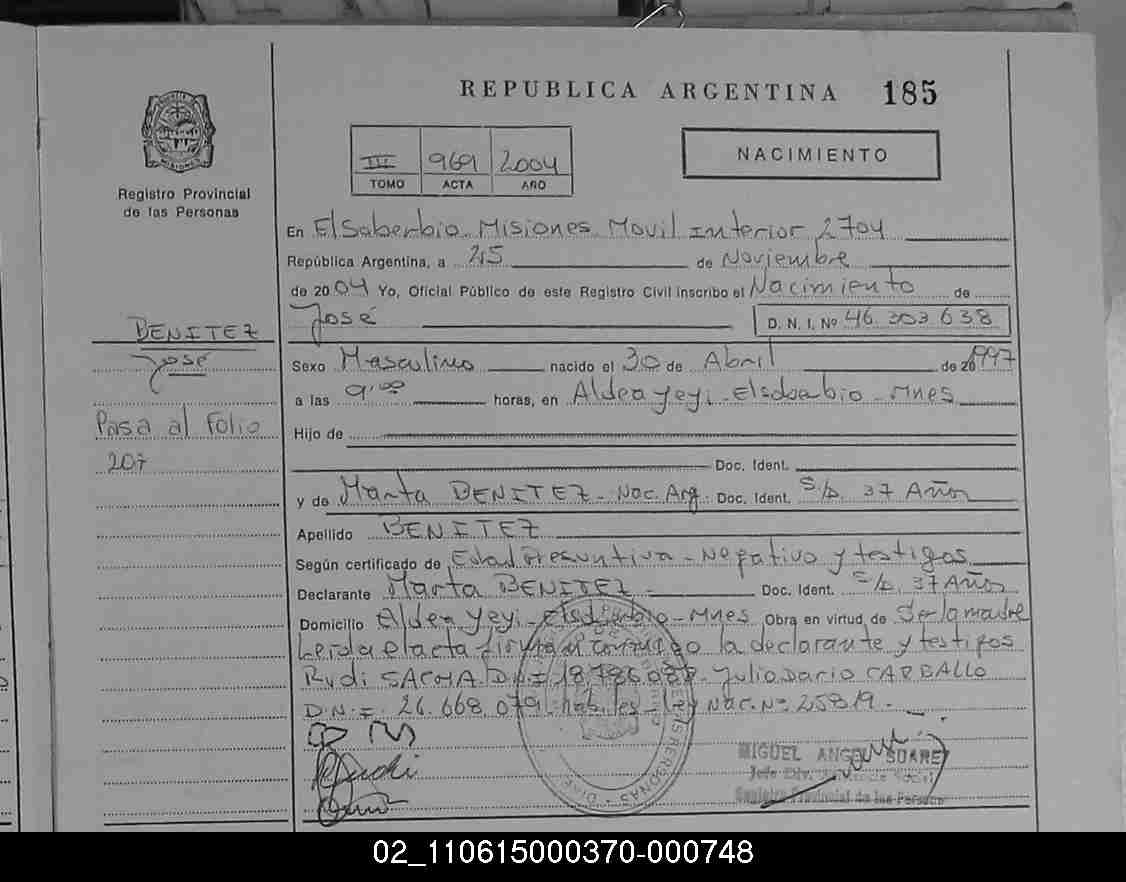 REPUBLICA ARGENTINA 185
MISIONES
Registro Provincial
de las Personas
III 969 2004
TOMO ACTA AÑO
NACIMIENTO
En El Soberbio Misiones Movil Interior 2704
República Argentina, a 25 de Noviembre
de 2004 Yo, Oficial Público de este Registro Civil inscribo el Nacimiento de
José D. N. I. Nº 46.303.638
BENITEZ
José
Pasa al Folio
207
Sexo Masculino nacido el 30 de Abril de 1997
a las 9:00 horas, en Aldea Yeyi - El Soberbio - Mnes
Hijo de
Doc. Ident.
y de Marta BENITEZ - Nac. Arg. Doc. Ident. S/D. 37 Años
Apellido BENITEZ
Según certificado de Edad Presuntiva - Negativo y testigos
Declarante Marta BENITEZ - Doc. Ident. S/D. 37 Años
Domicilio Aldea Yeyi - El Soberbio - Mnes Obra en virtud de Ser la madre
Leida el acta firman conmigo la declarante y testigos
Rudi SACHA D.N.I. Julio Dario CARBALLO
D.N.I. 26.668.079 - hábiles - Ley Nac. Nº 25819 -
MIGUEL ANGEL SUAREZ
Registro Provincial de las Personas
02_110615000370-000748